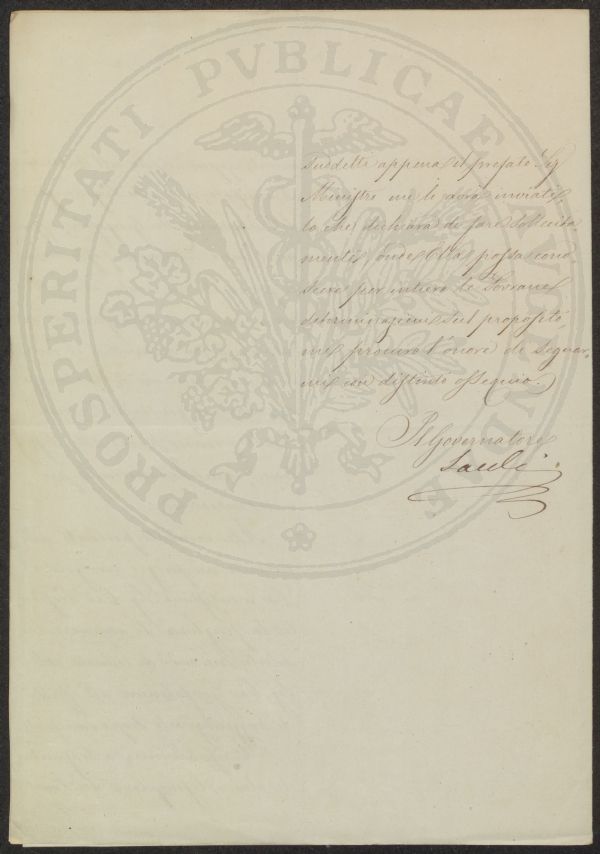 PROSPERITATI PVBLICAE AVGENDAE
suddetti appena il prefato Sig
Ministro me li avrà inviati
lo che dichiara di fare sollecita
mente, onde Ella possa cono
scere per intiero le Sovrane
determinazioni sul proposito,
mi procuro l'onore di segnar,
mi con distinto ossequio.
Il Governatore
Sauli